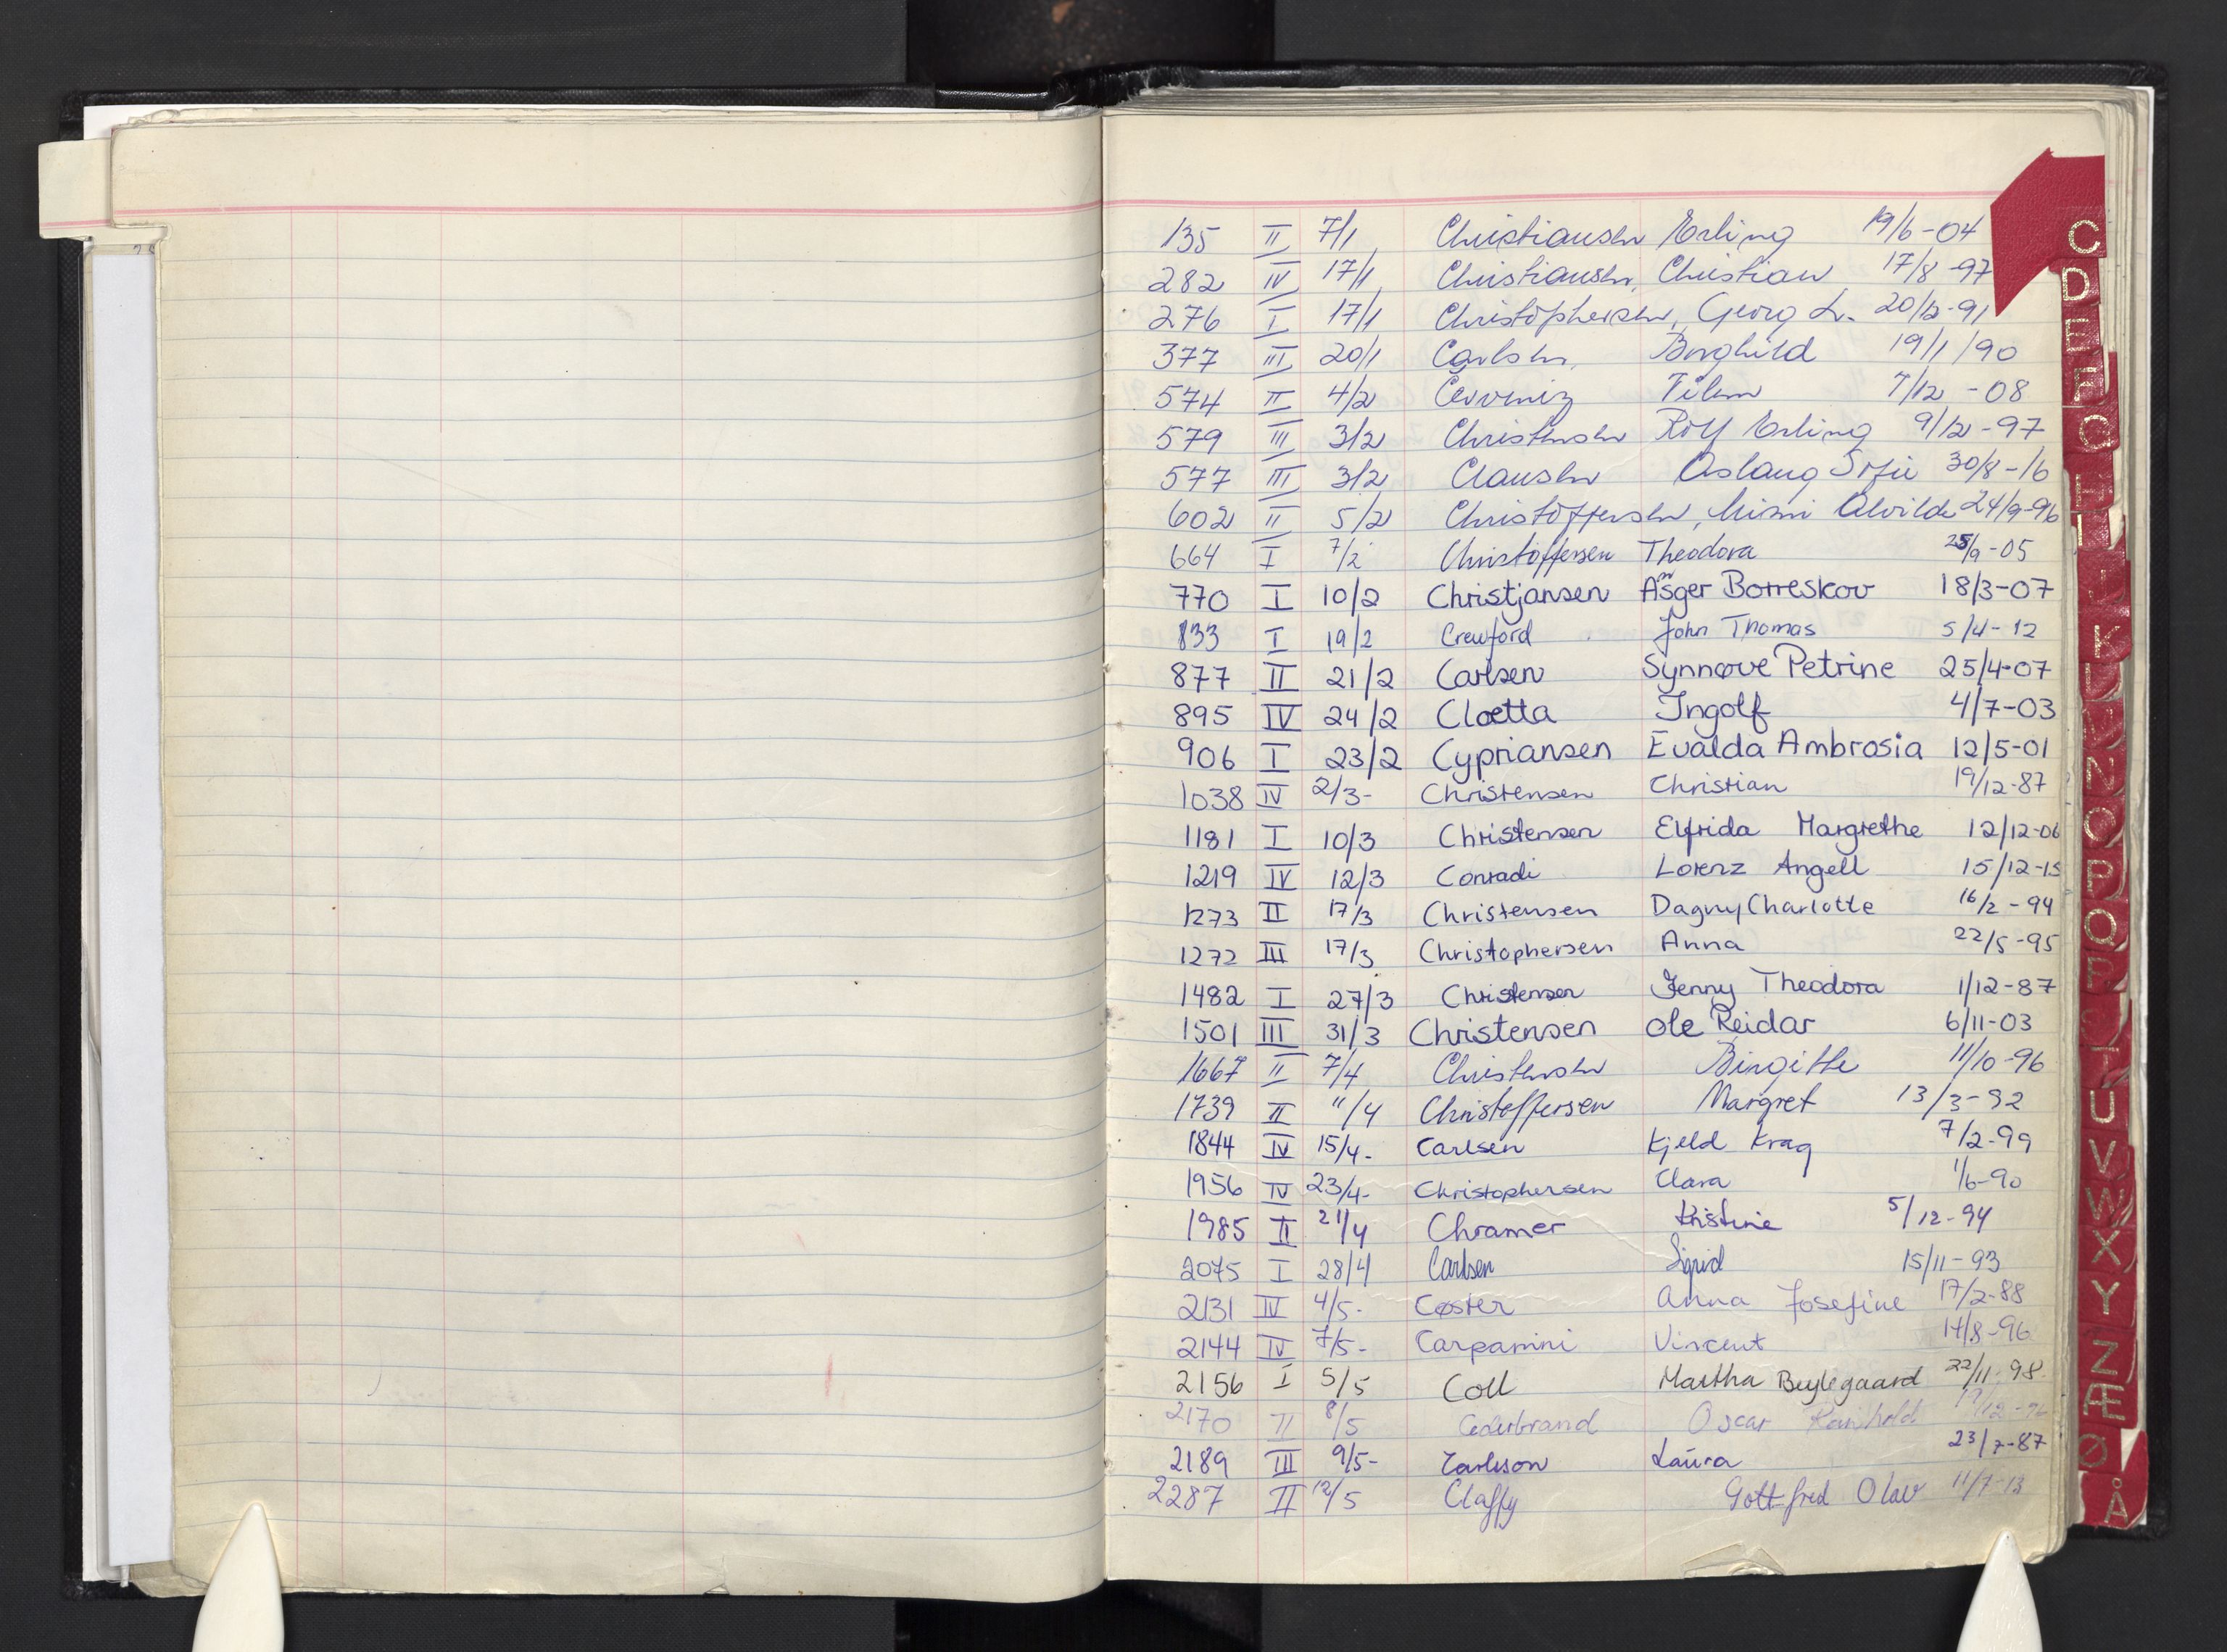 135 II 7/1 Christiansen Erling 19/6-04
282 IV 17/1 Christiansen, Christian 17/8-97
276 I 17/1 Christophersen, Georg L. 20/12-91
377 III 20/1 Carlsen, Borghild 19/1/90
574 II 4/2 7/12-08
579 III 3/2 Christensen Rolf Erling 9/12-97
577 III 3/2 Clausen Aslaug Sofie 30/8-16
602 II 5/2 Christoffersen, Mimi Alvilde 24/9-96
664 I 7/2 Christoffersen Theodora 25/9-05
770 I 10/2 Christjansen Asger Borreskov 18/3-07
833 I 19/2 Crewford John Thomas 5/4-12
877 II 21/2 Carlsen Synnøve Petrine 25/4-07
895 IV 24/2 Cloetta Ingolf 4/7-03
906 I 23/2 Cypriansen Evalda Ambrosia 12/5-01
1038 IV 2/3- Christensen Christian 19/12-87
1181 I 10/3 Christensen Elfrida Margrethe 12/12-06
1219 IV 12/3 Conradi Lorenz Angell 15/12-15
1273 II 17/3 Christensen Dagny Charlotte 16/2-94
1272 III 17/3 Christophersen Anna 22/5-95
1482 I 27/3 Christensen Jenny Theodora 1/12-87
1501 III 31/3 Christensen Ole Reidar 6/11-03
1667 II 7/4 Christensen Birgitte 11/10-96
1739 II 11/4 Christoffersen Margret 13/3-92
1844 IV 15/4- Carlsen Kjeld Krag 7/2-99
1956 IV 23/4- Christophersen Clara 1/6-90
1985 II 21/4 Chramer Kristine 5/12-94
2075 I 28/4 Carlsen Sigrid 15/11-93
2131 IV 4/5- Cøster Anna Josefine 17/2-88
2144 IV 7/5- Carpanini Vincent 14/8-96
2156 I 5/5 Coll Martha Bejlegaard 22/11-98
2170 II 8/5 Cederbrand Oscar Reinhold
2189 III 9/5- Carlsson Laura 23/7-87
2287 II 12/5 Claffy Gottfred Olav 11/7-13
C
D
E
F
G
H
I
J
K
L
M
N
O
P
Q
R
S
T
U
V
W
X
Y
Z
Æ
Ø
Å